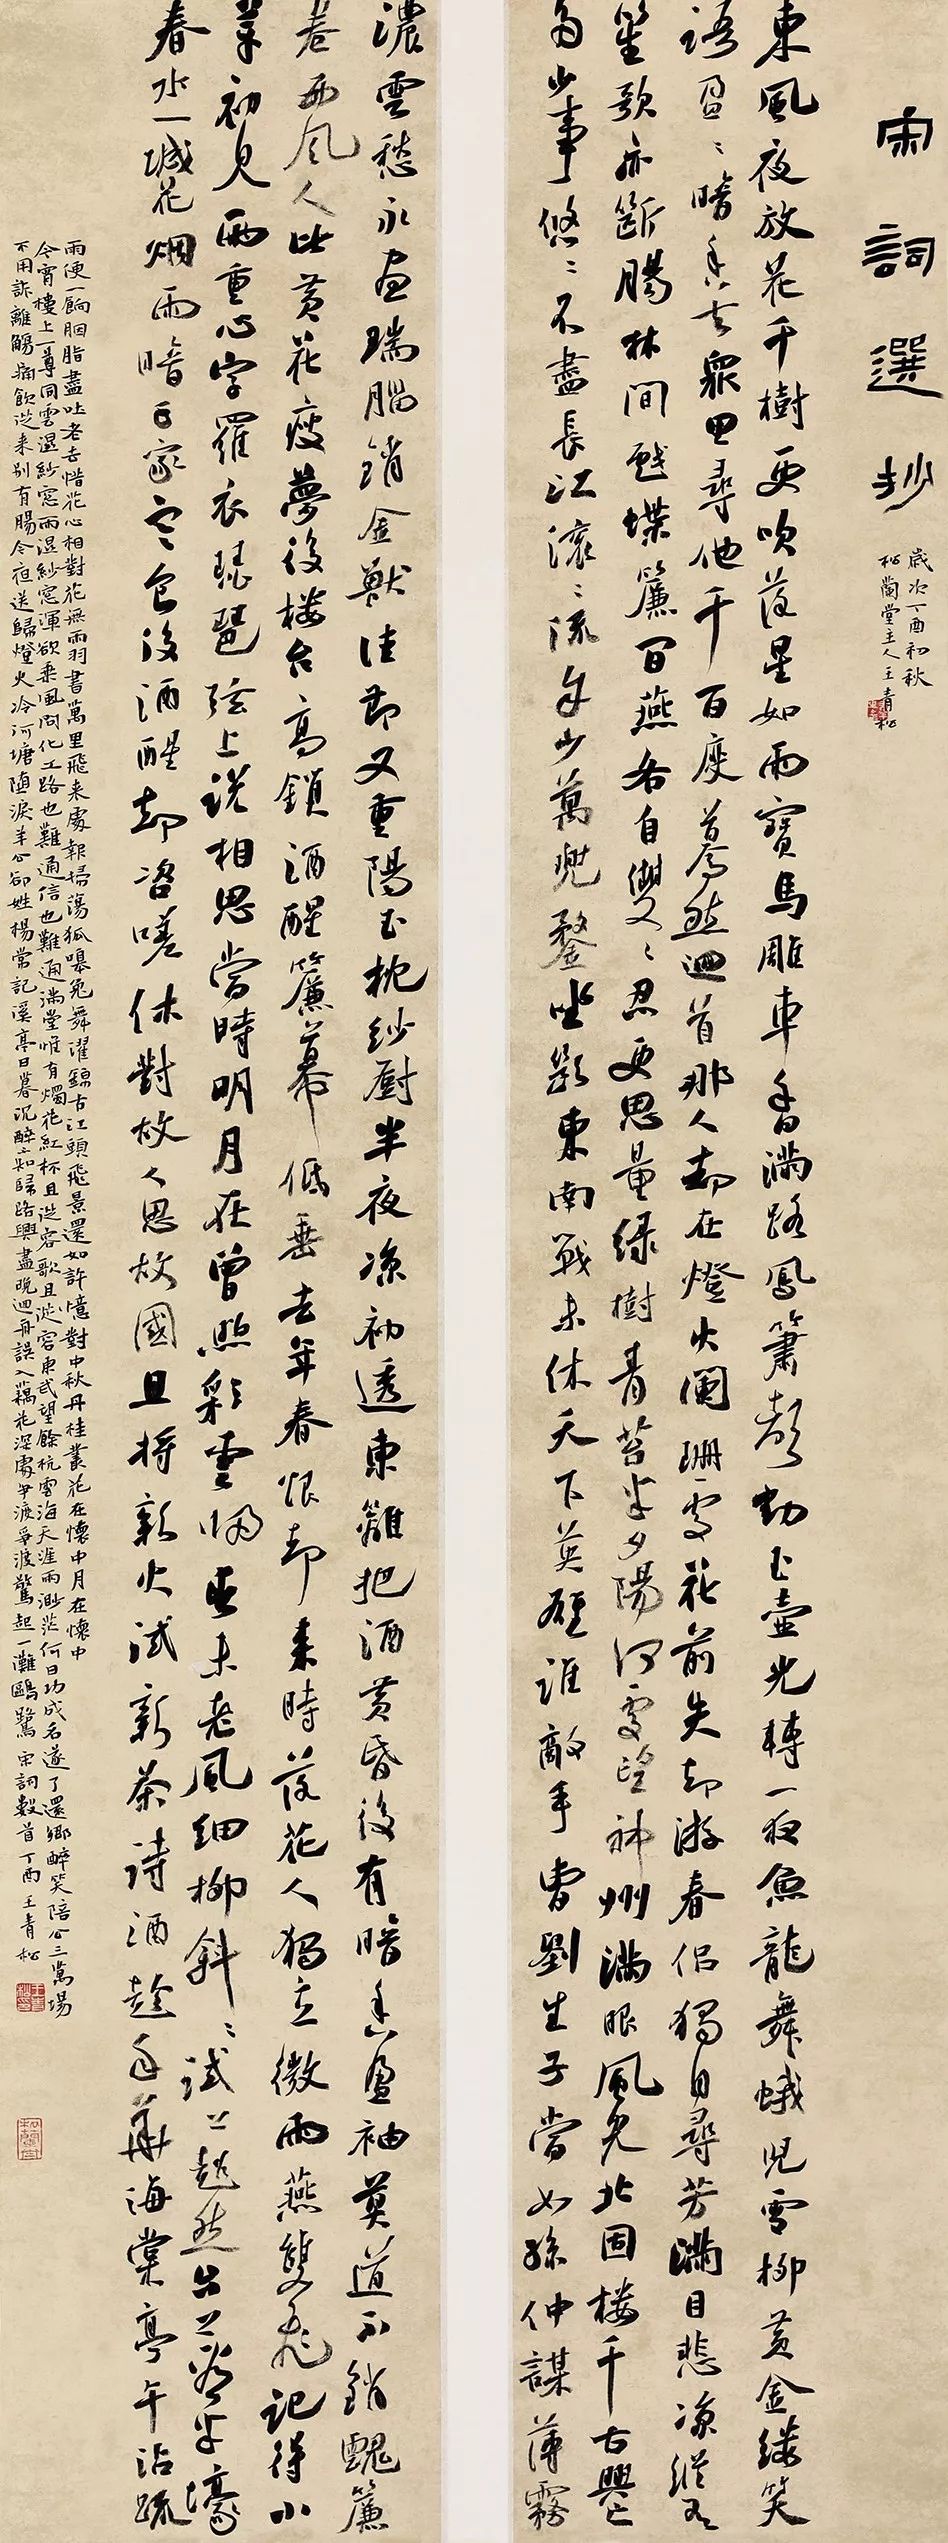 宋詞選抄
歲次丁酉初秋
松蘭堂主人王青松
東風夜放花千樹更吹落星如雨寶馬雕車香滿路鳳簫聲動玉壺光轉一夜魚龍舞蛾兒雪柳黃金縷笑
語盈〻暗香去眾里尋他千百度驀然迴首那人却在燈火闌珊處花前失却游春侶獨自尋芳滿目悲涼縱有
笙歌亦斷腸林間戲蝶簾間燕各自雙〻忍更思量綠樹青苔半夕陽何處望神州滿眼風光北固樓千古興亡
多少事悠〻不盡長江滾〻流年少萬兜鍪坐斷東南戰未休天下英雄誰敵手曹劉生子當如孫仲謀薄霧
濃雲愁永晝瑞腦銷金獸佳節又重陽玉枕紗廚半夜涼初透東籬把酒黃昏後有暗香盈袖莫道不銷魂簾
卷西風人比黃花瘦夢後樓台高鎖酒醒簾幕低垂去年春恨却來時落花人獨立微雨燕雙飛記得小
蘋初見兩重心字羅衣琵琶弦上說相思當時明月在曾照彩雲歸春未老風細柳斜〻試上超然台上看半壕
春水一城花烟雨暗千家寒食後酒醒却咨嗟休對故人思故國且將新火試新茶詩酒趁年華海棠亭午沾疏
雨便一餉胭脂盡吐老去惜花心相對花無雨羽書萬里飛來處報掃蕩狐嗥兔舞濯錦古江頭飛景還如許憶對中秋丹桂叢花在懷中月在懷中
今宵樓上一尊同雲濕紗窗雨濕紗窗渾欲乘風問化工路也難通信也難通滿堂惟有燭花紅杯且從容歌且從容東武望餘杭雲海天涯兩渺茫何日功成名遂了還鄉醉笑陪公三萬場
不用訴離觴痛飲從來別有腸今夜送歸燈火冷河塘墮淚羊公却姓楊常記溪亭日暮沉醉不知歸路興盡晚迴舟誤入藕花深處爭渡爭渡驚起一灘鷗鷺宋詞數首丁酉王青松